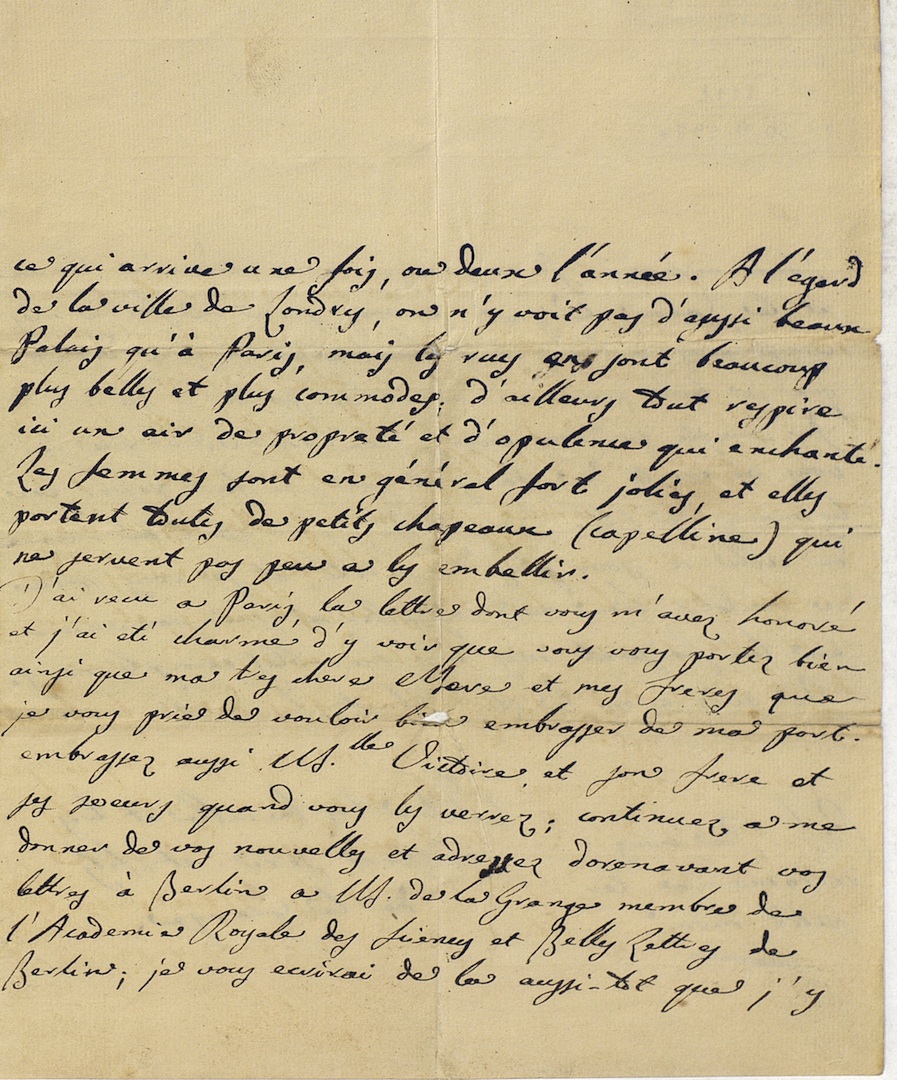 ce qui arrive une fois, ou deux l'année. A l'égard
de la ville de Londres, on n'y voit pas d'aussi beaux
Palais qu'à Paris, mais les rues en sont beaucoup
plus belles et plus commodes; d'ailleurs tout respire
ici un air de propreté et d'opulence qui enchante.
Les femmes sont en général fort jolies, et elles
portent toutes de petits chapeaux (capelline) qui
ne servent pas peu a les embellir.
J'ai recu a Paris la lettre dont vous m'avez honoré
et j'ai eté charmé d'y voir que vous vous portez bien
ainsi que ma tres chere Mere et mes freres que
je vous prie de vouloir bien embrasser de ma part.
embrassez aussi M.lle Victoire et son frere et
ses soeurs quand vous les verrez; continuez a me
donner de vos nouvelles et adressez dorenavant vos
lettres à Berlin a M. de la Grange membre de
l'Academie Royale des Sciences et Belles Lettres de
Berlin; je vous ecrirai de la aussi-tot que j'y